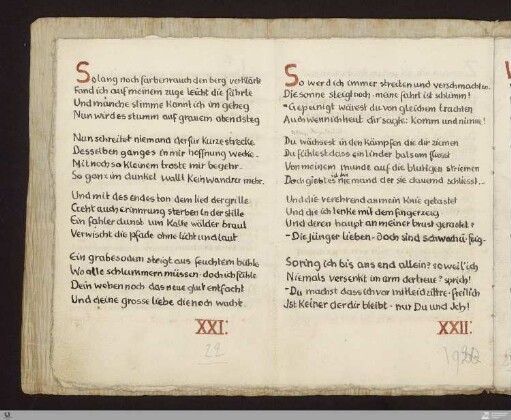 Solang noch farbenrauch den berg verklärte
Fand ich auf meinem zuge leicht die fährte
Und manche stimme kannt ich im geheg
Nun wird es stumm auf grauem abendsteg.
Nun schreitet niemand der für kurze strecke
Desselben ganges in mir hoffnung wecke·
Mit noch so kleinem troste mir begehr.
So ganz im dunkel wallt kein wandrer mehr.
Und mit des endes ton dem lied der grille
Geht auch erinnrung sterben in der stille
Ein fahler dunst um kalte wälder braut
Verwischt die pfade ohne licht und laut
Ein grabesodem steigt aus feuchtem bühle
Wo alle schlummern müssen· doch ich fühle
Dein wehen noch das neue glut entfacht
Und deine grosse liebe die noch wacht.
XXI:
22
So werd ich immer streiten und verschmachten
Die sonne steigt noch· meine fahrt ist schlimm!
-Gepeinigt wärest du von gleichem trachten
Auch wenn ich heut dir sagte: Komm und nimm!
Du wächsest in den kämpfen die dir ziemen
Du fühlest dass ein linder balsam fliesst
Von meinem munde auf die blutigen striemen
Doch giebt es niemand der sie dauernd schliesst.-
Und die verehrend am knie getastet
Und die ich lenke mit dem fingerzeig
Und deren haupt an meiner brust gerastet?
-Die jünger lieben· Doch sind schwach u· feig.
So ring ich bis ans end allein? so weil ich
Niemals versenkt im arm der treue? sprich!
-Du machst dass ich vor mitleid zittre· freilich
Ist keiner der dir bleibt· nur Du und Ich!
XXII: